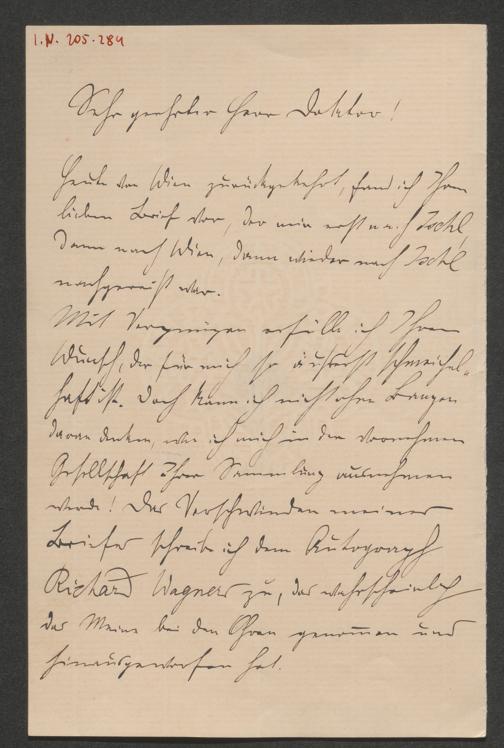 I.N. 205.284
Sehr geehrter Herr Doktor!
Heute von Wien zurückgekehrt, fand ich Ihren
lieben Brief vor, der mir erst nach Ischl,
dann nach Wien, dann wieder nach Ischl
nachgereist war.
Mit Vergnügen erfülle ich Ihren
Wunsch, der für mich so äußerst schmeichel-
haft ist. Doch kann ich nicht ohne Bangen
daran denken, wie ich mich in der vornehmen
Gesellschaft Ihrer Sammlung ausnehmen
werde! Das Verschwinden meines
Briefes schreibe ich dem Autograph
Richard Wagners zu, das wahrscheinlich
das Meine bei den Ohren genommen und
hinausgeworfen hat.